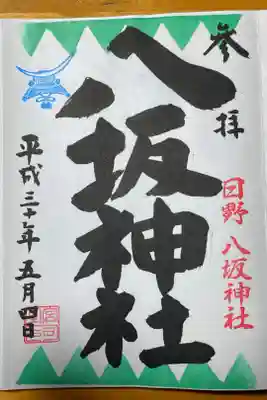 参拝
日野 八坂神社
八坂神社
平成三十年 五月四日